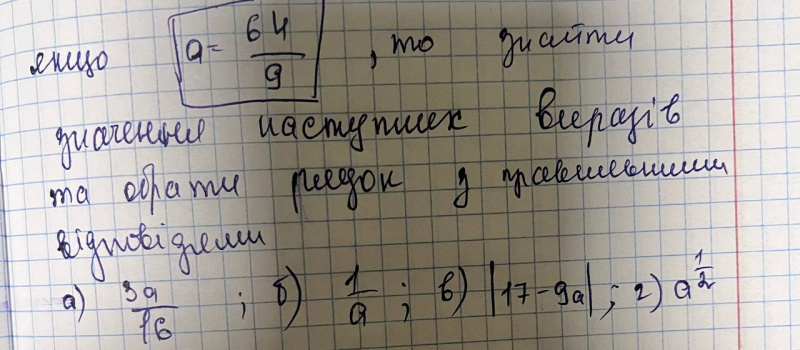 якщо a = 64/9, то знайти
значення наступних виразів
та обрати рядок з правильними
відповідями
а) 3a/16 ; б) 1/a ; в) |17-9a| ; г) a^1/2